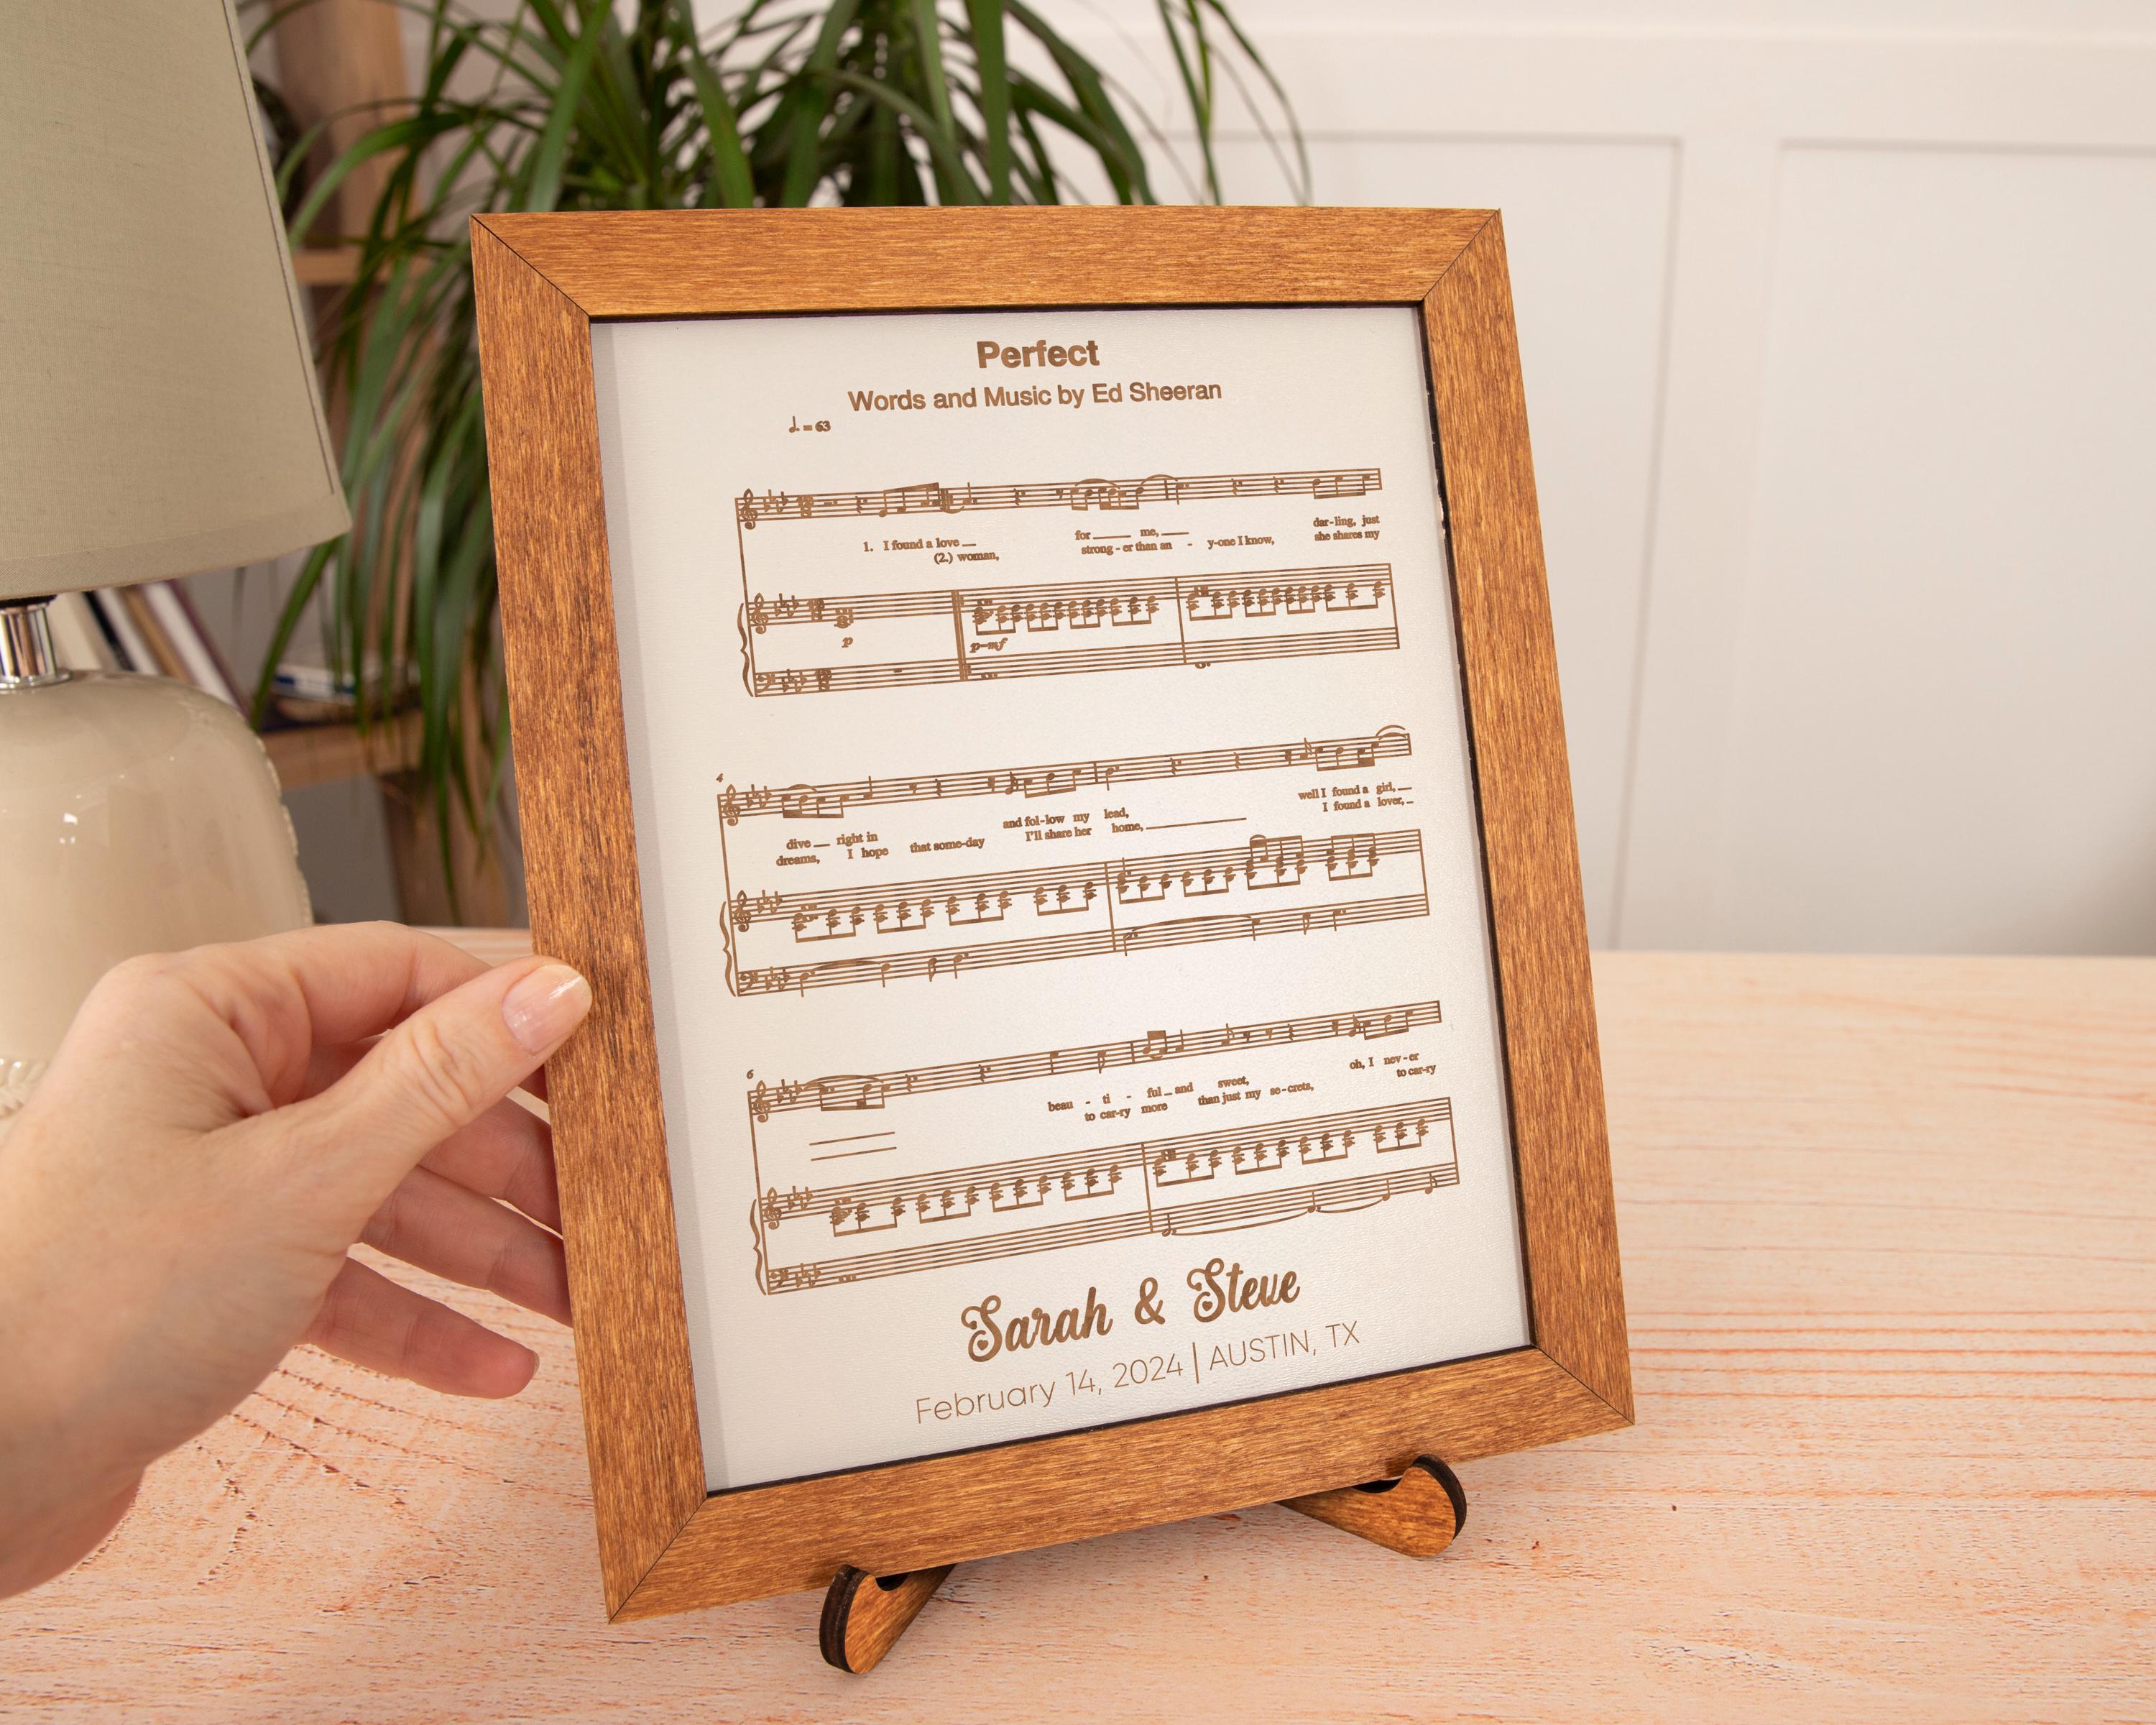 Perfect
Words and Music by Ed Sheeran
= 63
1. I found a love __ for ____ me, ___ dar - ling, just
(2.) woman, strong - er than an - y-one I know, she shares my
p
p-mf
4
dive __ right in and fol-low my lead, well I found a girl, __
dreams, I hope that some-day I'll share her home, ____ I found a lover, _
6
beau - ti - ful _ and sweet, oh, I nev - er
to car-ry more than just my se-crets, to car-ry
Sarah & Steve
February 14, 2024 | AUSTIN, TX